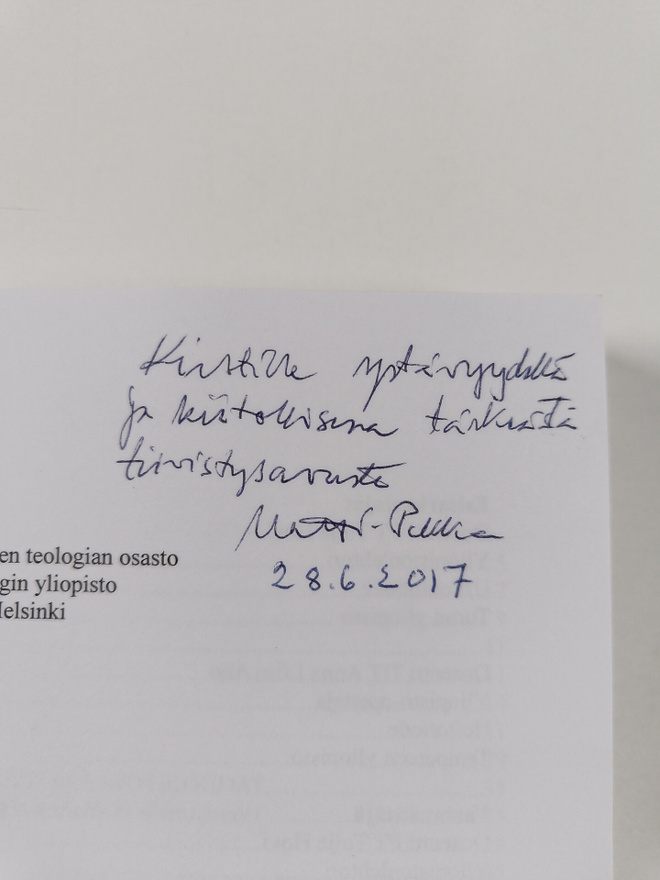 Kirstille ystävyydellä
ja kiitollisena tärkeästä
tiivistysavusta
Matti-Pekka
28.6.2017
en teologian osasto
gin yliopisto
Helsinki